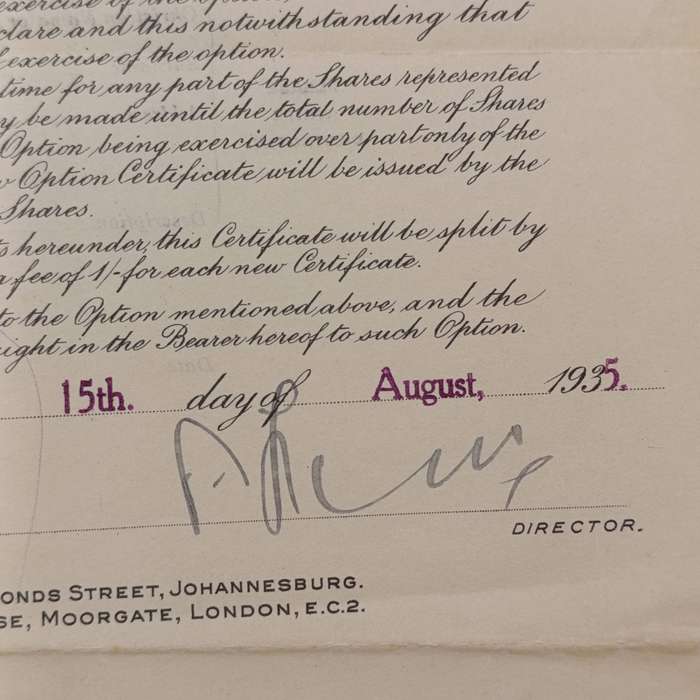 exercise of the option,
clare and this notwithstanding that
f exercise of the option.
time for any part of the Shares represented
y be made until the total number of Shares
Option being exercised over part only of the
Option Certificate will be issued by the
Shares.
s hereunder, this Certificate will be split by
a fee of 1/- for each new Certificate.
to the Option mentioned above, and the
ight in the Bearer hereof to such Option.
15th. day of August, 1935.
DIRECTOR.
ONDS STREET, JOHANNESBURG.
SE, MOORGATE, LONDON, E.C.2.